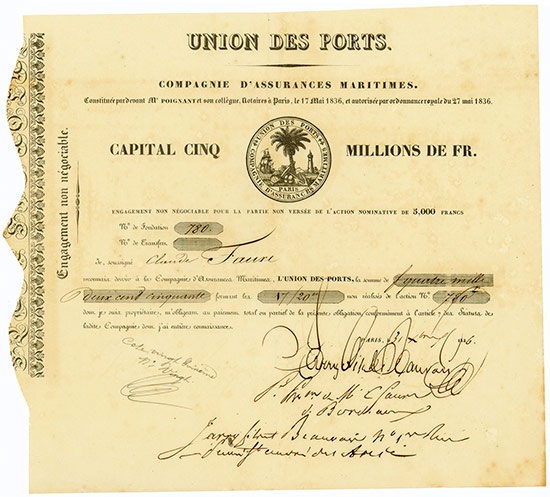 UNION DES PORTS.
COMPAGNIE D'ASSURANCES MARITIMES.
Constituée par devant Me POIGNANT et son collègue, Notaires à Paris, le 17 Mai 1836, et autorisée par ordonnance royale du 27 mai 1836.
Engagement non négociable.
CAPITAL CINQ MILLIONS DE FR.
UNION DES PORTS
COMPAGNIE D'ASSURANCES MARITIMES
PARIS
ENGAGEMENT NON NÉGOCIABLE POUR LA PARTIE NON VERSÉE DE L'ACTION NOMINATIVE DE 5,000 FRANCS
No. de Fondation 780.
No. de Transfert
Je, soussigné Claude Faure
reconnais devoir à la Compagnie d'Assurances Maritimes, L'UNION DES PORTS, la somme de quatre mille
deux cent cinquante formant les 17/20es non réalisés de l'action No. 780
dont je suis propriétaire, m'obligeant au paiement total ou partiel de la présente obligation conformément à l'article 7 des Statuts de
ladite Compagnie dont j'ai entière connaissance.
PARIS,
de Bordeaux
Beauvais